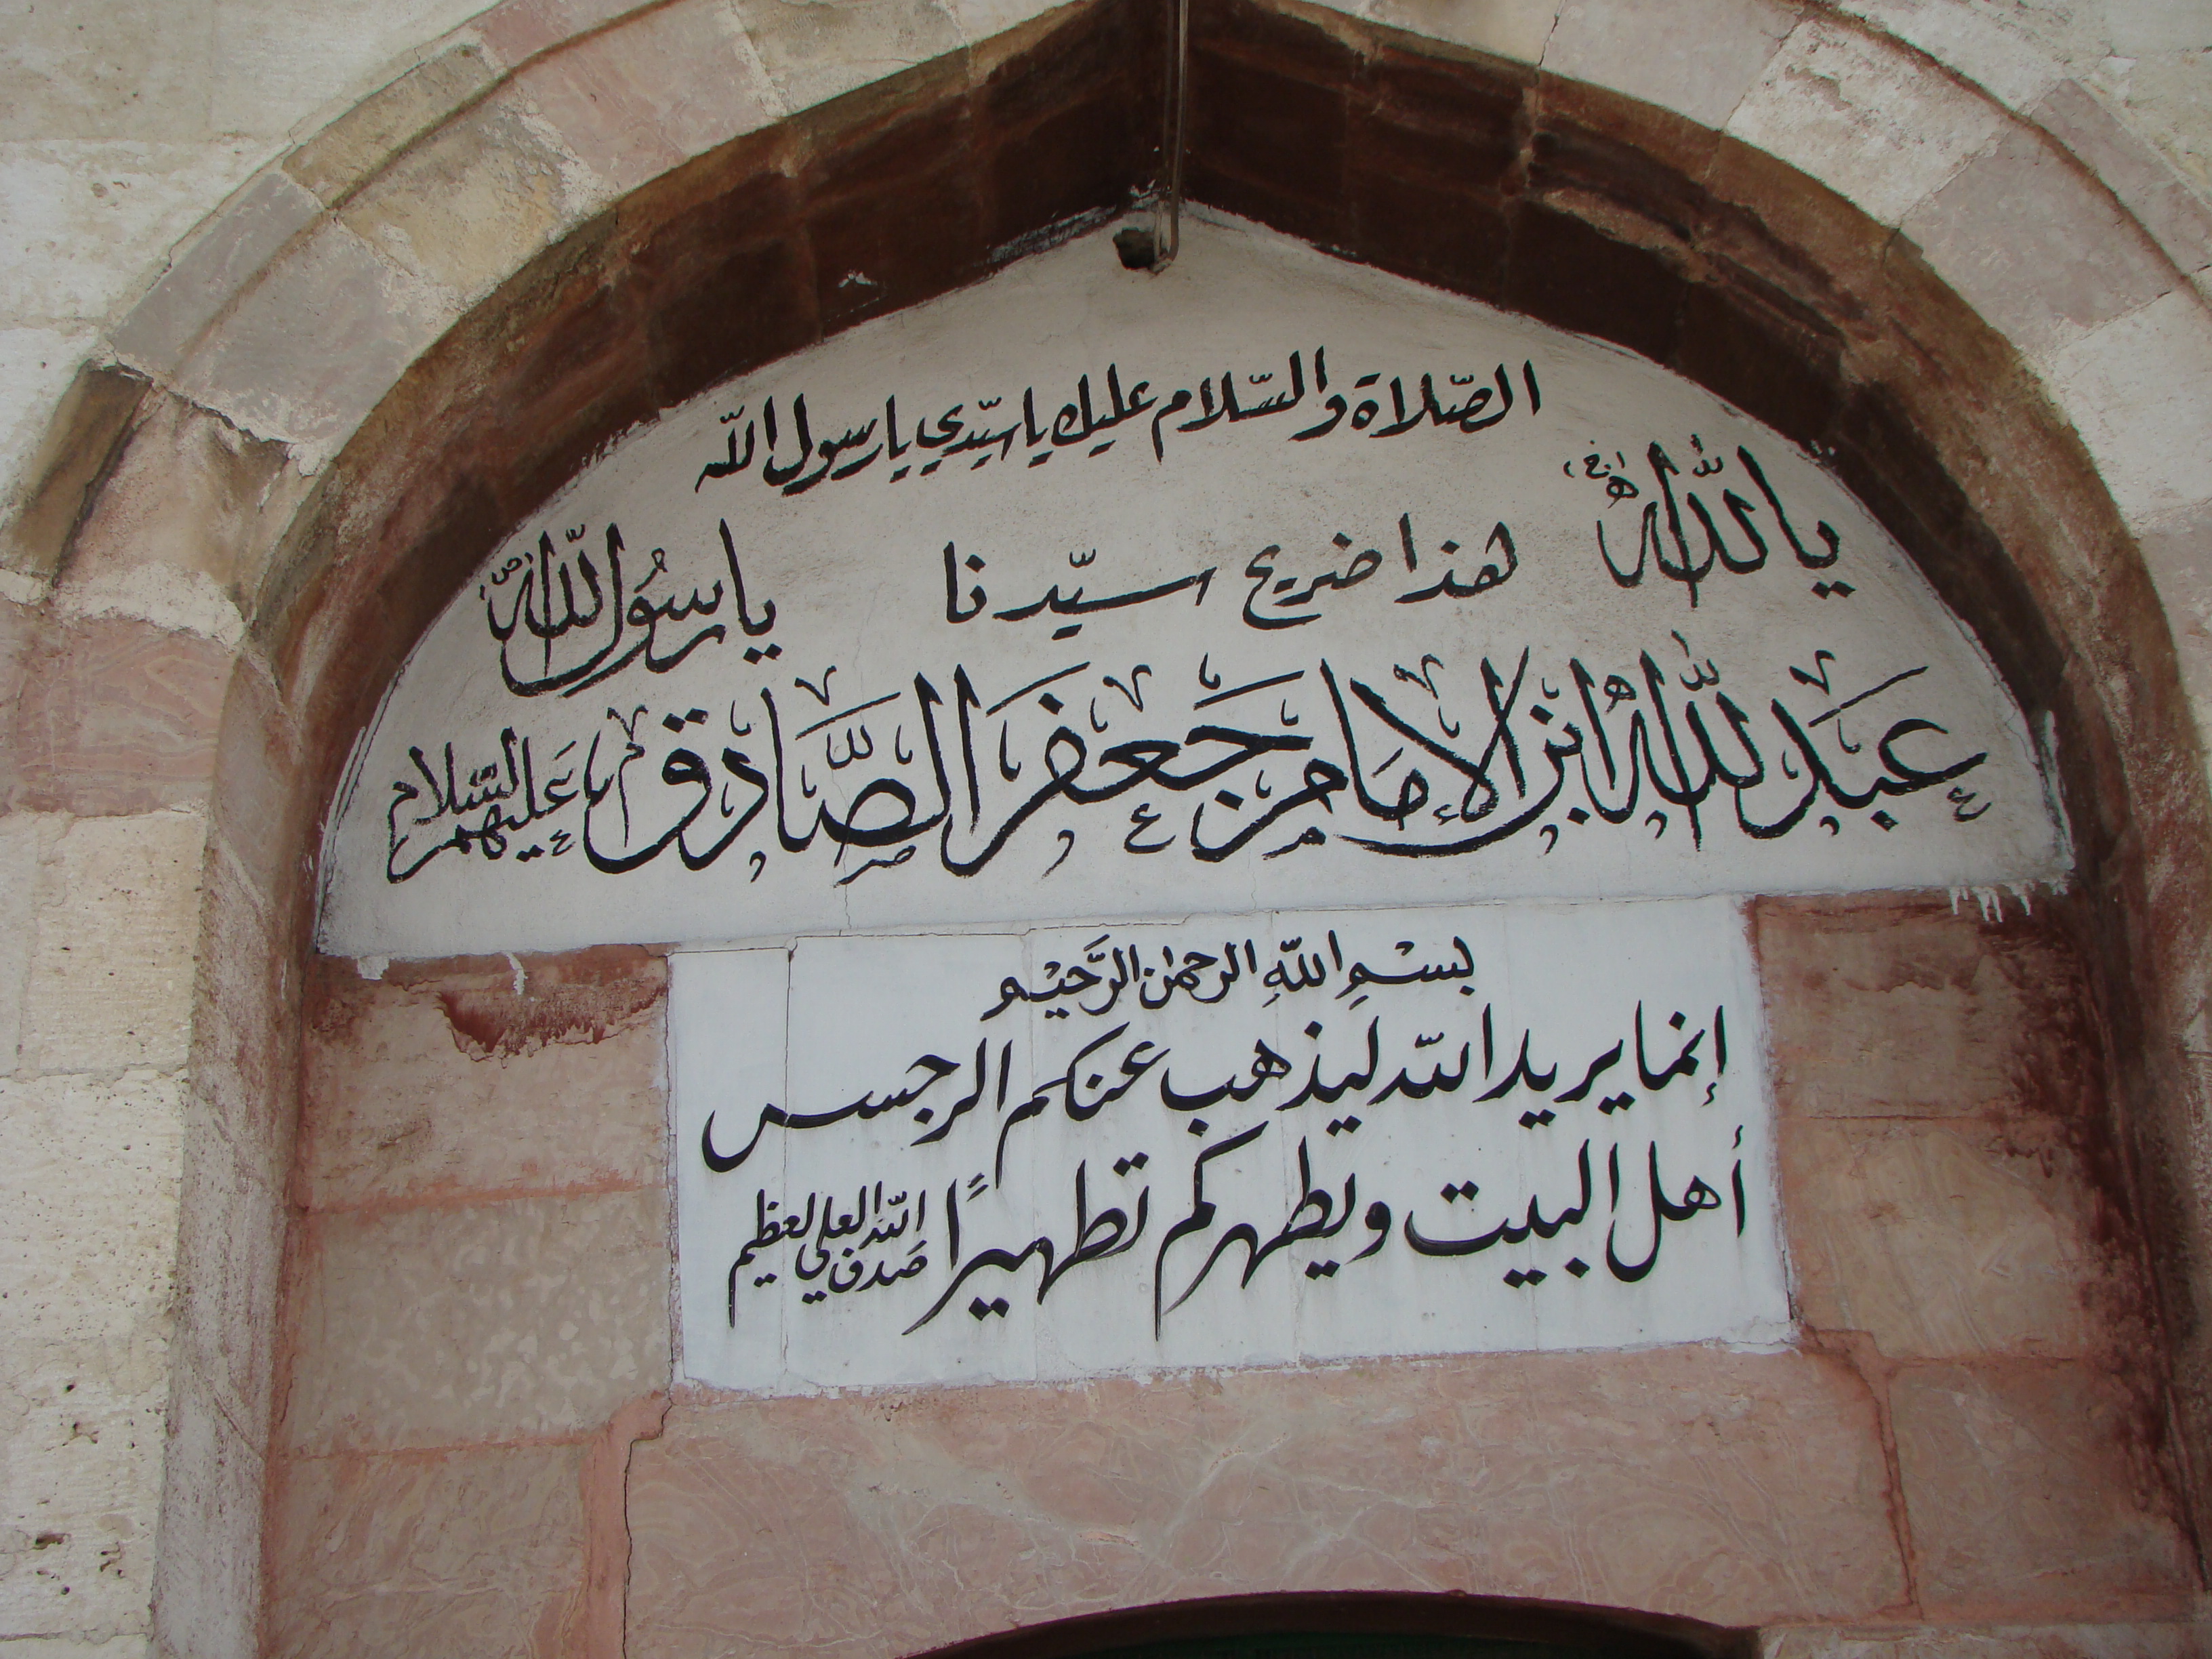 الصّلاة والسّلام عليك يا سيّدي يا رسول اللّه
يا اللّٰه هذا ضريح سيّدنا يا رسُول اللّٰه
عبَد اللّٰه ابن الإمَام جَعفَر الصَّادق عَليهم السّلام
بسْمِ اللّهِ الرحمٰن الرَّحيْم
إنما يريد اللّه ليذهب عنكم الرجس
أهل البيت ويطهركم تطهيرًا صَدق اللّه العلي العظيم